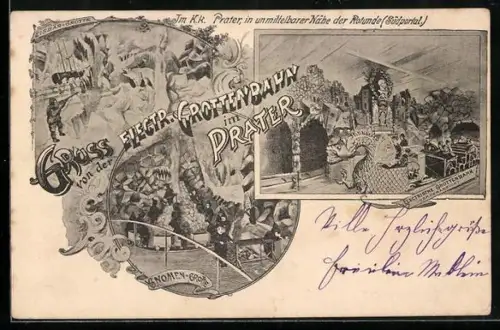 Im K.k. Prater, in unmittelbarer Nähe der Rotunde (Südportal.)
Gruss
von der
ELECTR. GROTTENBAHN
im
PRATER
GNOMEN-GROTTE
ELEKTRISCHE GROTTENBAHN
Viele